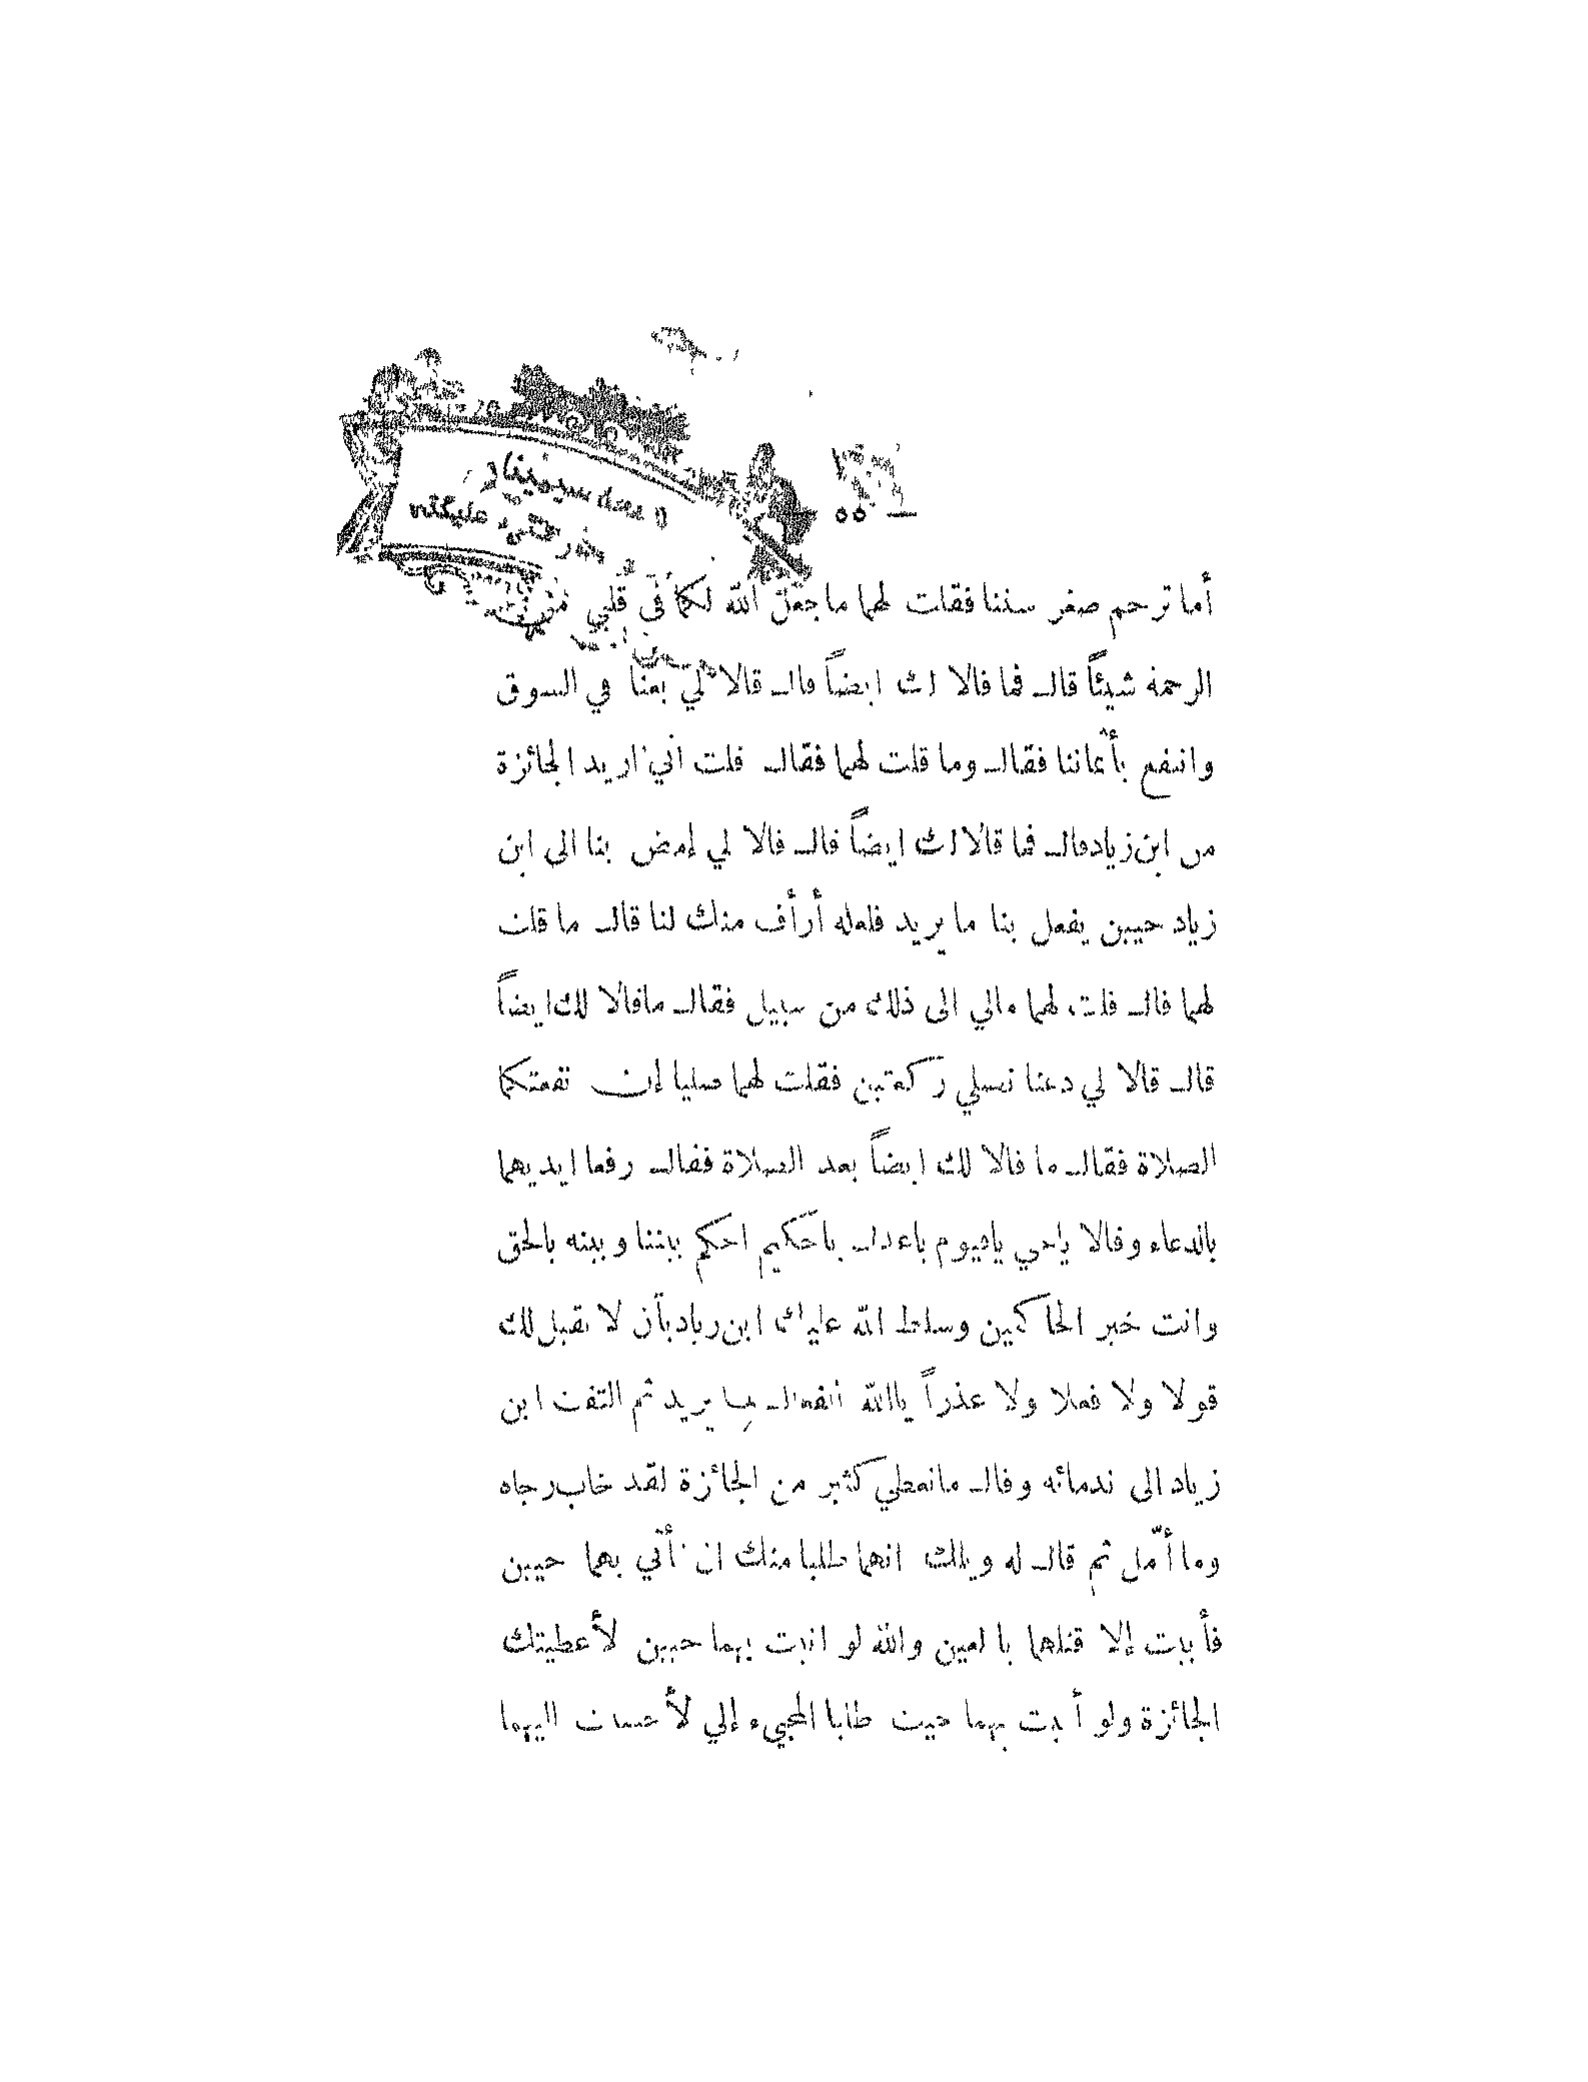 — ٥٥
أما ترحم صغر سننا فقلت لهما ما جعل الله لكما في قلبي من
الرحمة شيئاً قال فما قالا لك ايضاً قال قالا لي بعنا في السوق
وانتفع بأثماننا فقال وما قلت لهما فقال قلت اني اريد الجائزة
من ابن زياد قال فما قالا لك ايضاً قال قالا لي إمض بنا الى ابن
زياد حيين يفعل بنا ما يريد فلعله أرأف منك لنا قال ما قلت
لهما قال قلت لهما مالي الى ذلك من سبيل فقال ما قالا لك ايضاً
قال قالا لي دعنا نصلي ركعتين فقلت لهما صليا إن نفعتكما
الصلاة فقال ما قالا لك ايضاً بعد الصلاة فقال رفعا ايديهما
بالدعاء وقالا ياحي ياقيوم ياعدل ياحكيم احكم بيننا وبينه بالحق
وانت خير الحاكمين وسلط الله عليك ابن زياد بأن لا يقبل لك
قولا ولا فعلا ولا عذراً ياالله الفعال لما يريد ثم التفت ابن
زياد الى ندمائه وقال ما نعطي كثير من الجائزة لقد خاب رجاه
وما أمّل ثم قال له ويلك انهما طلبا منك ان تأتي بهما حيين
فأبيت إلا قتلهما يا لعين والله لو اتيت بهما حيين لأعطيتك
الجائزة ولو أتيت بهما حين طلبا المجيء إلي لأحسنت اليهما